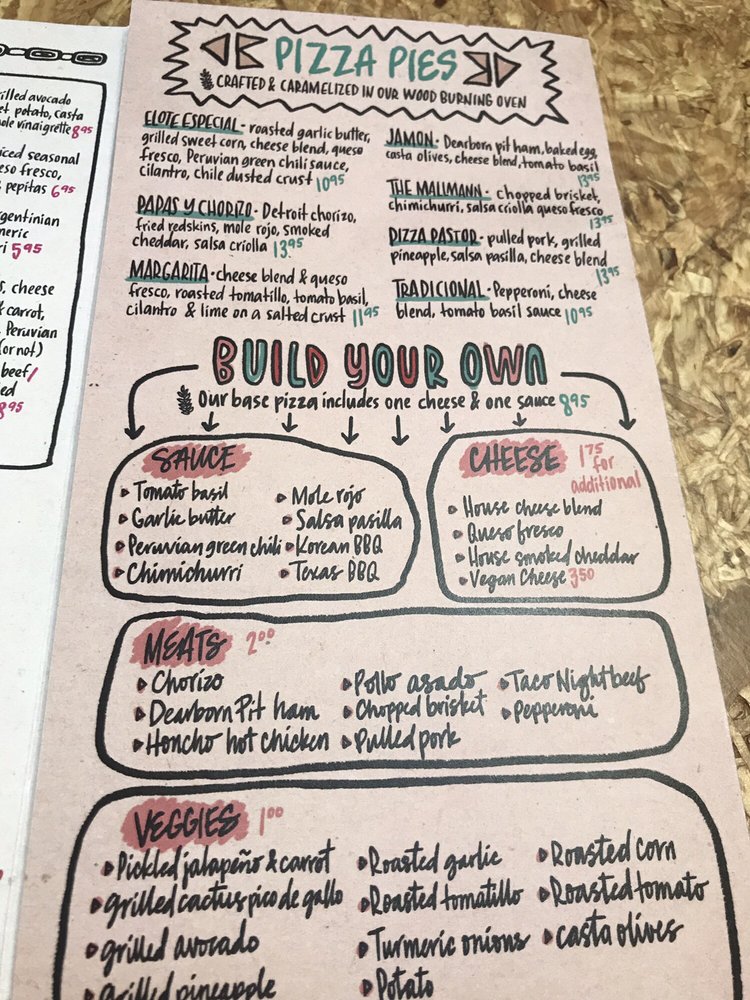 illed avocado
et potato, casta
ole vinaigrette 8.95
iced seasonal
eso fresco,
pepitas 6.95
rgentinian
meric
ri 5.95
s, cheese
& carrot,
Peruvian
(or not)
beef/
ed
8.95
PIZZA PIES
CRAFTED & CARAMELIZED IN OUR WOOD BURNING OVEN
ELOTE ESPECIAL - roasted garlic butter,
grilled sweet corn, cheese blend, queso
fresco, Peruvian green chili sauce,
cilantro, chile dusted crust 10.95
PAPAS Y CHORIZO - Detroit chorizo,
fried redskins, mole rojo, smoked
cheddar, salsa criolla 13.95
MARGARITA - cheese blend & queso
fresco, roasted tomatillo, tomato basil,
cilantro & lime on a salted crust 11.95
JAMON - Dearborn pit ham, baked egg,
casta olives, cheese blend, tomato basil
13.95
THE MALLMANN - chopped brisket,
chimichurri, salsa criolla queso fresco
13.95
PIZZA PASTOR - pulled pork, grilled
pineapple, salsa pasilla, cheese blend
13.95
TRADICIONAL - Pepperoni, cheese
blend, tomato basil sauce 10.95
BUILD YOUR OWN
Our base pizza includes one cheese & one sauce 8.95
SAUCE
Tomato basil
Garlic butter
Peruvian green chili
Chimichurri
Mole rojo
Salsa pasilla
Korean BBQ
Texas BBQ
CHEESE 1.75 for additional
House cheese blend
Queso fresco
House smoked cheddar
Vegan Cheese 3.50
MEATS 2.00
Chorizo
Dearborn Pit ham
Honcho hot chicken
Pollo asado
Chopped brisket
Pulled pork
Taco Night beef
Pepperoni
VEGGIES 1.00
Pickled jalapeño & carrot
grilled cactus pico de gallo
grilled avocado
grilled pineapple
Roasted garlic
Roasted tomatillo
Turmeric onions
Potato
Roasted corn
Roasted tomato
casta olives